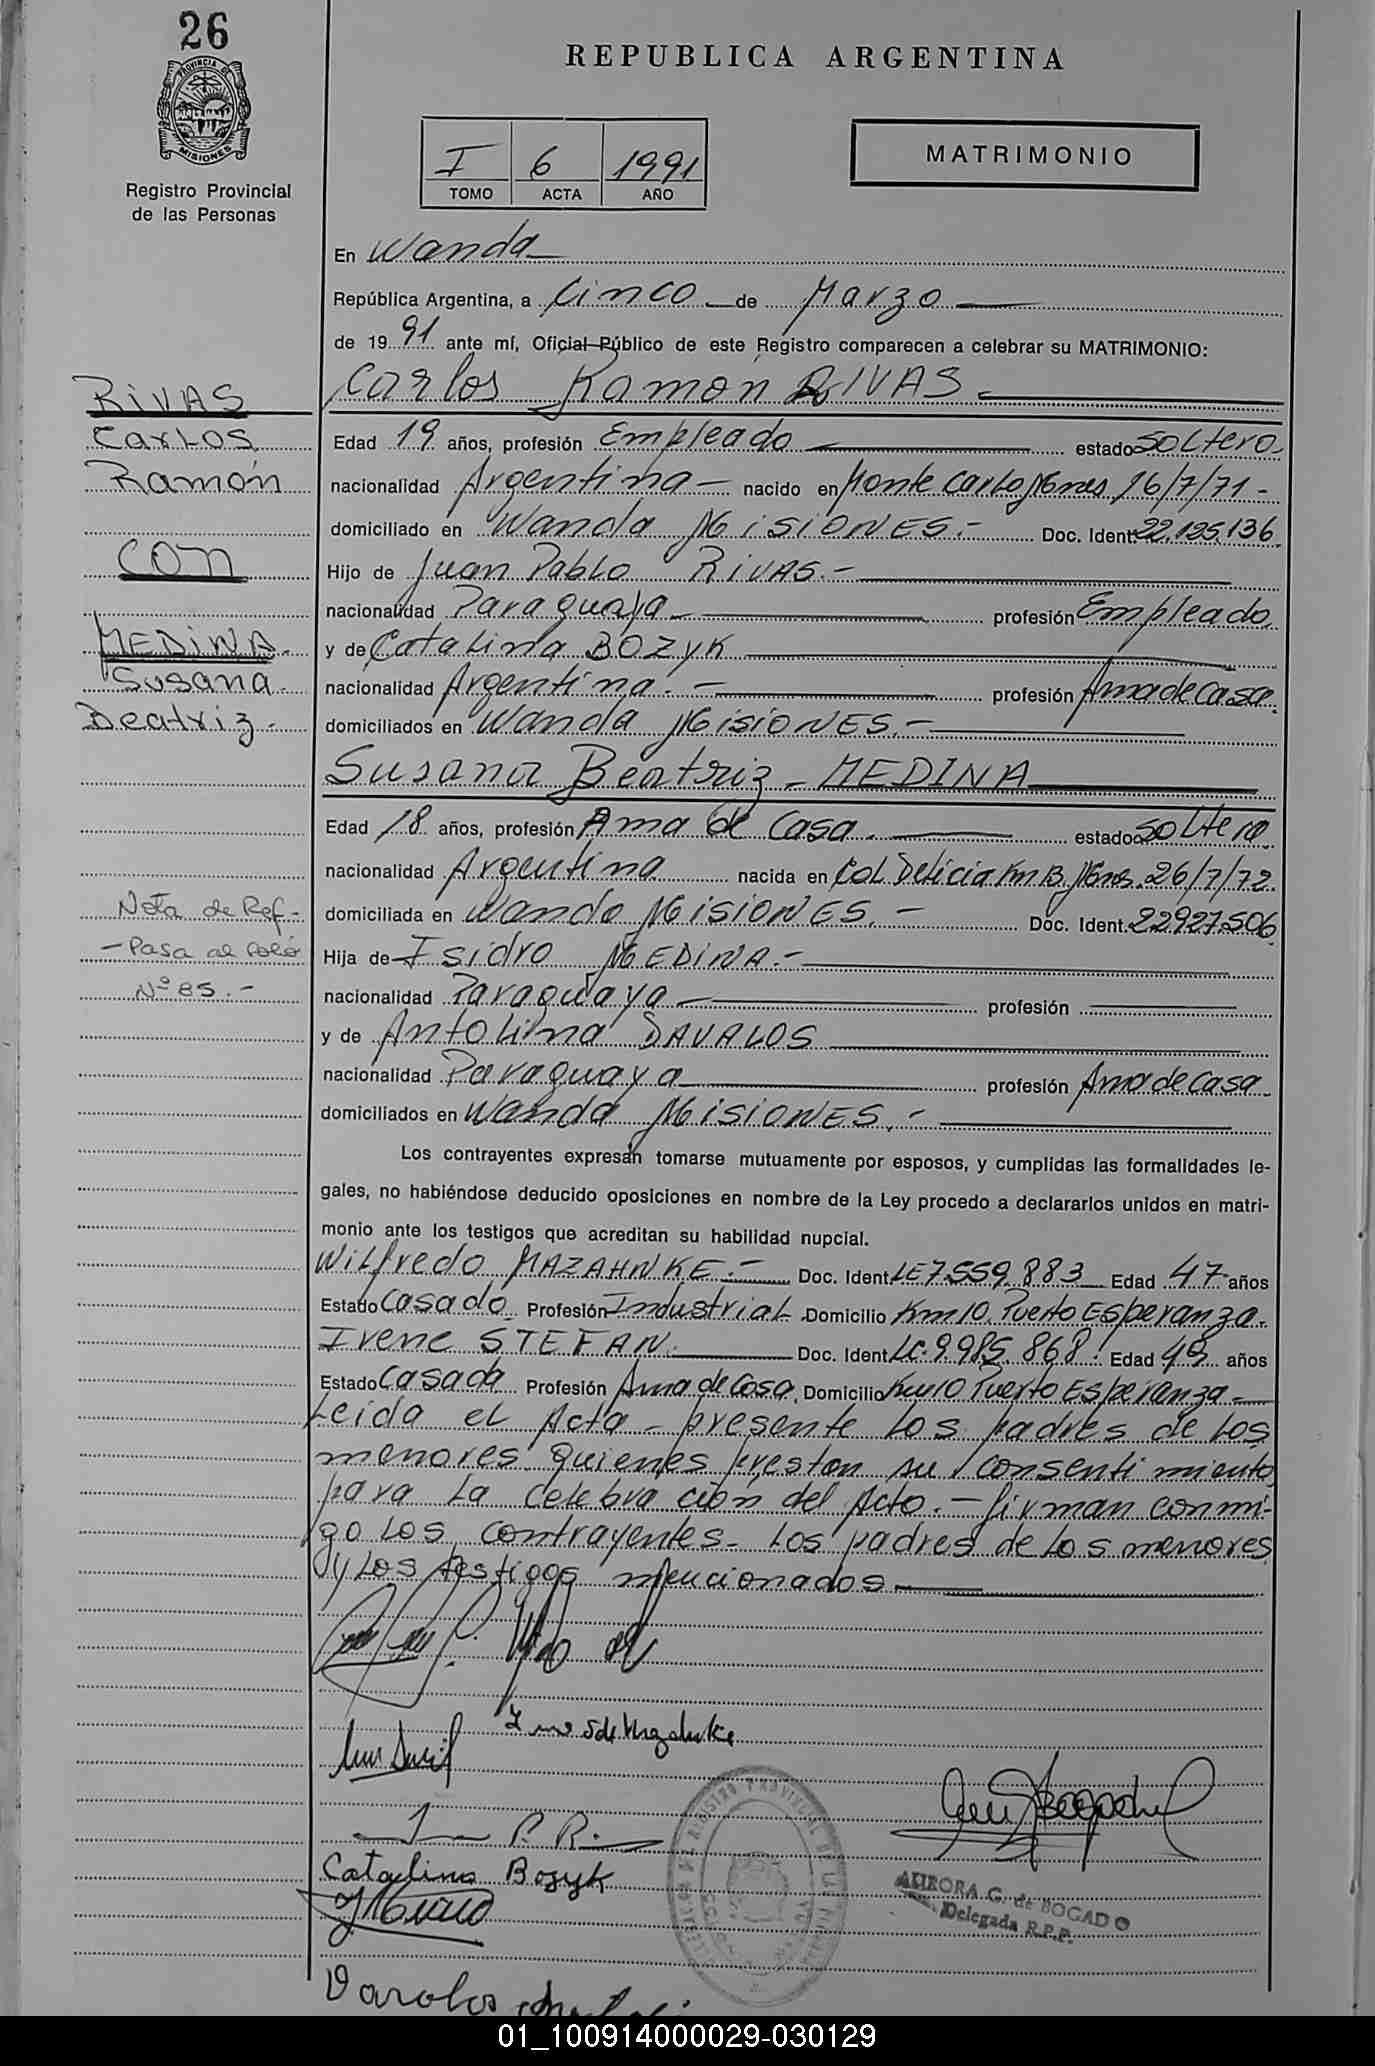 26
REPUBLICA ARGENTINA
PROVINCIA DE
MISIONES
Registro Provincial
de las Personas
I 6 1991
TOMO ACTA AÑO
MATRIMONIO
En Wanda
República Argentina, a Cinco de Marzo
de 19 91 ante mí, Oficial Público de este Registro comparecen a celebrar su MATRIMONIO:
Carlos Ramón RIVAS
RIVAS
Carlos
Ramón
CON
MEDINA.
Susana
Beatriz.-
Edad 19 años, profesión Empleado estado soltero
nacionalidad Argentina nacido en Monte Carlo Mnes 16/7/71-
domiciliado en Wanda MISIONES.- Doc. Ident. 22.125.136
Hijo de Juan Pablo RIVAS.-
nacionalidad Paraguaya profesión Empleado
y de Catalina BOZYK
nacionalidad Argentina.- profesión Ama de Casa.
domiciliados en Wanda MISIONES.-
Susana Beatriz MEDINA
Edad 18 años, profesión Ama de Casa. estado soltera
nacionalidad Argentina nacida en Col Delicia Km Mnes. 26/7/72.
domiciliada en Wanda MISIONES.- Doc. Ident. 22.927.506
Nota de Ref-
-Pasa al folio
Nº 85.-
Hija de Isidro MEDINA.-
nacionalidad Paraguaya profesión
y de Antolina DAVALOS
nacionalidad Paraguaya profesión Ama de Casa
domiciliados en Wanda MISIONES.-
Los contrayentes expresan tomarse mutuamente por esposos, y cumplidas las formalidades le-
gales, no habiéndose deducido oposiciones en nombre de la Ley procedo a declararlos unidos en matri-
monio ante los testigos que acreditan su habilidad nupcial.
Wilfredo MAZAHNKE.- Doc. Ident. LE 7.559.883 Edad 47 años
Estado Casado Profesión Industrial. Domicilio Km 10. Puerto Esperanza.
Irene STEFAN. Doc. Ident. LC. 9.985.868 Edad años
Estado Casada Profesión Ama de Casa. Domicilio Km 10 Puerto Esperanza
Leida el Acta - presente los padres de los
menores quienes prestan su consentimiento
para la celebración del Acto.- firman conmi-
go los contrayentes. los padres de los menores
y los testigos mencionados
Catalina Bozyk
AURORA G. de BOGADO
Delegada R.P.P.
01_100914000029-030129